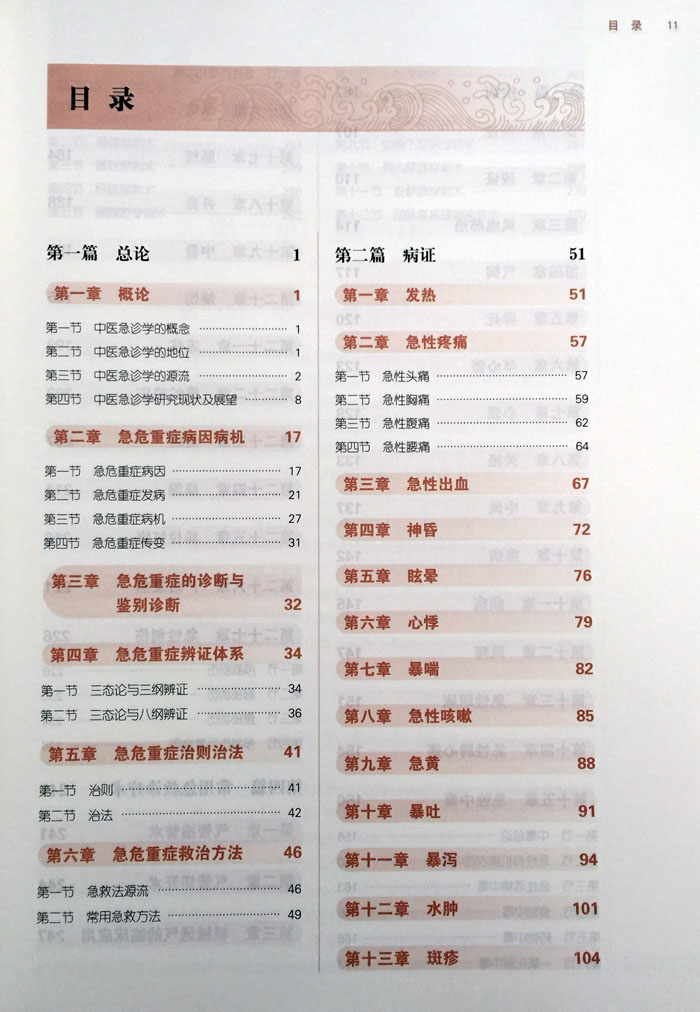 目 录 11
目 录
第一篇 总论 1
第一章 概论 1
第一节 中医急诊学的概念 1
第二节 中医急诊学的地位 1
第三节 中医急诊学的源流 2
第四节 中医急诊学研究现状及展望 8
第二章 急危重症病因病机 17
第一节 急危重症病因 17
第二节 急危重症发病 21
第三节 急危重症病机 27
第四节 急危重症传变 31
第三章 急危重症的诊断与
鉴别诊断 32
第四章 急危重症辨证体系 34
第一节 三态论与三纲辨证 34
第二节 三态论与八纲辨证 36
第五章 急危重症治则治法 41
第一节 治则 41
第二节 治法 42
第六章 急危重症救治方法 46
第一节 急救法源流 46
第二节 常用急救方法 49
第二篇 病证 51
第一章 发热 51
第二章 急性疼痛 57
第一节 急性头痛 57
第二节 急性胸痛 59
第三节 急性腹痛 62
第四节 急性腰痛 64
第三章 急性出血 67
第四章 神昏 72
第五章 眩晕 76
第六章 心悸 79
第七章 暴喘 82
第八章 急性咳嗽 85
第九章 急黄 88
第十章 暴吐 91
第十一章 暴泻 94
第十二章 水肿 101
第十三章 斑疹 104